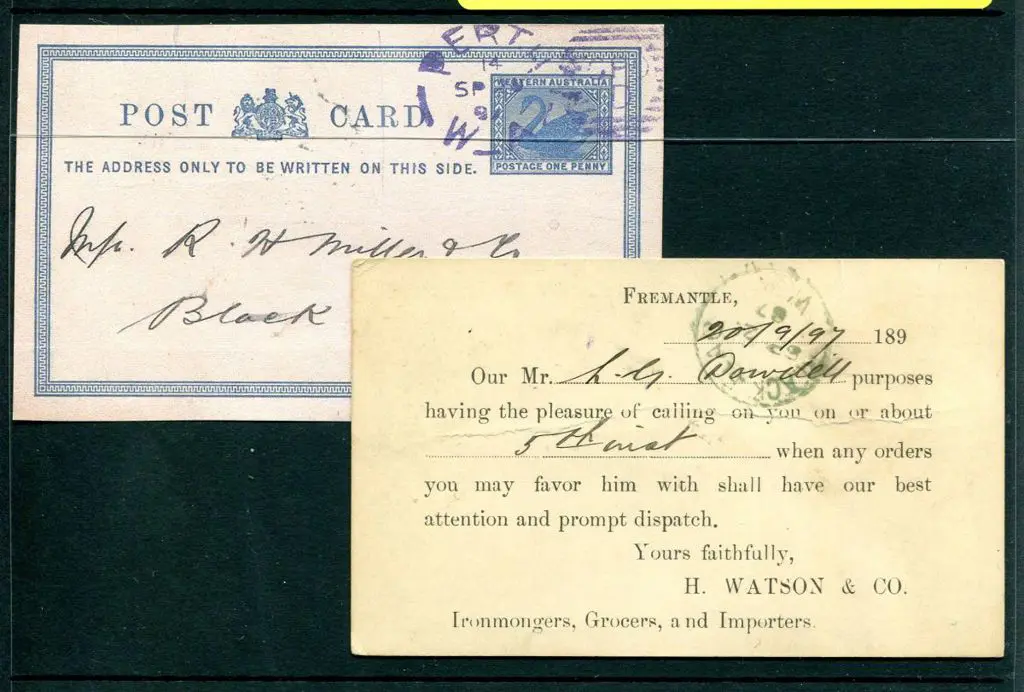 PERTH
14
SP
W
WESTERN AUSTRALIA
POSTAGE ONE PENNY
POST CARD
THE ADDRESS ONLY TO BE WRITTEN ON THIS SIDE.
R. H Miller & Co
Black
FREMANTLE,
20/9/97 189
Our Mr. Dowdell purposes
having the pleasure of calling on you on or about
5th inst when any orders
you may favor him with shall have our best
attention and prompt dispatch.
Yours faithfully,
H. WATSON & CO.
Ironmongers, Grocers, and Importers.